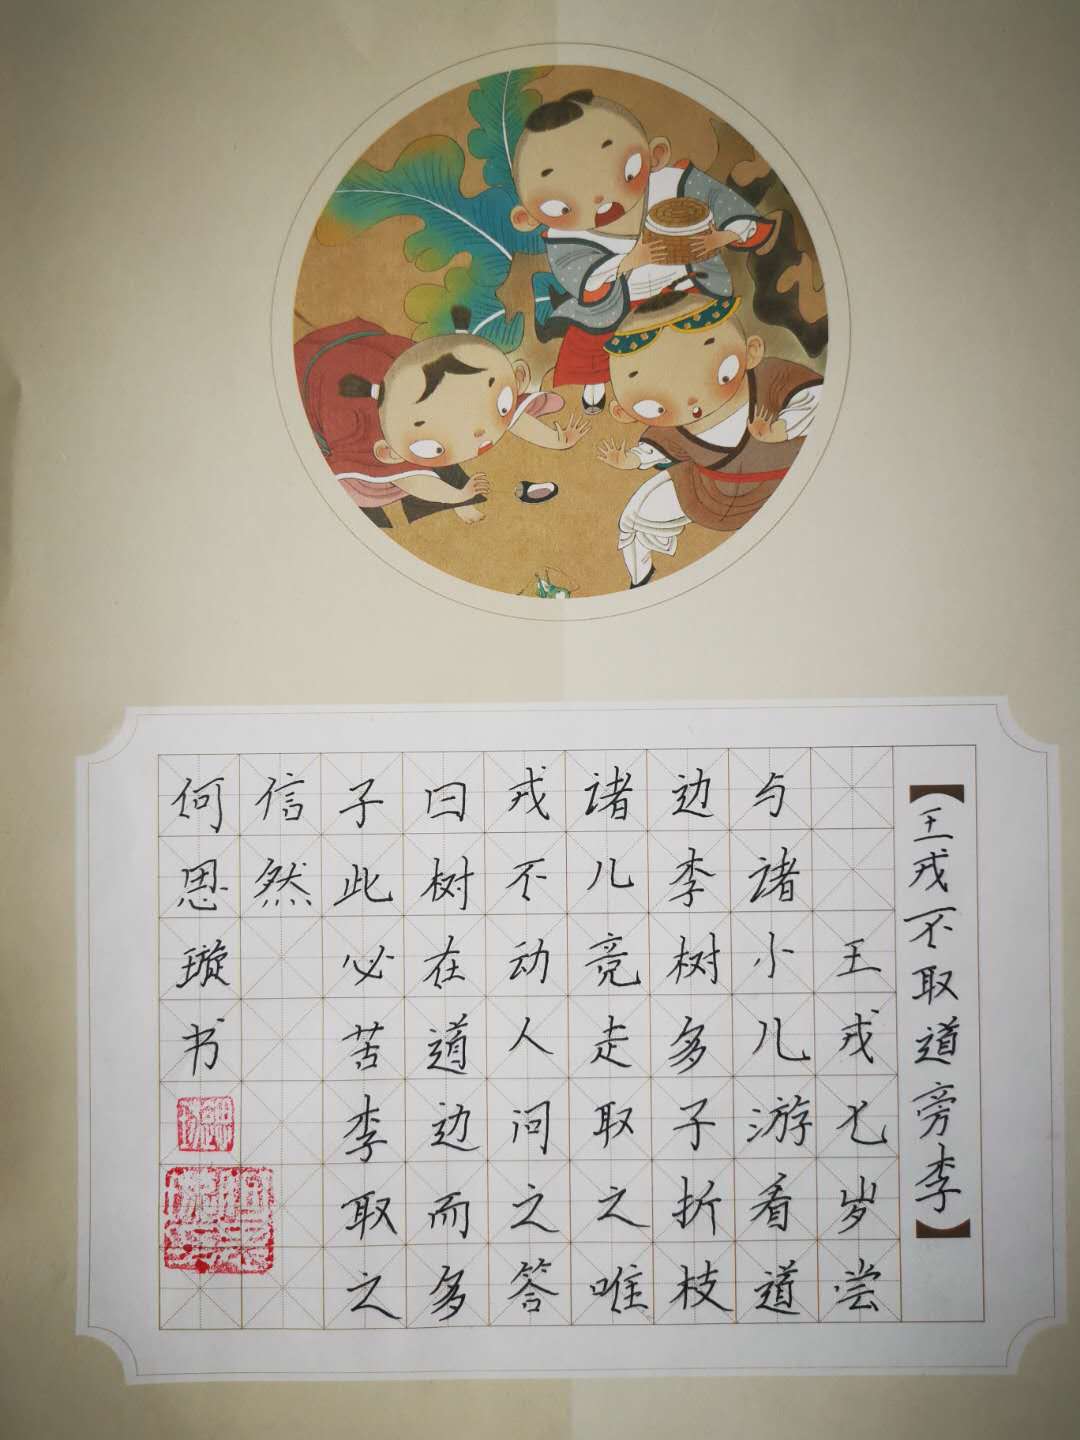 【王戎不取道旁李】
王戎七岁尝
与诸小儿游看道
边李树多子折枝
诸儿竞走取之唯
戎不动人问之答
曰树在道边而多
子此必苦李取之
信然
何思璇书